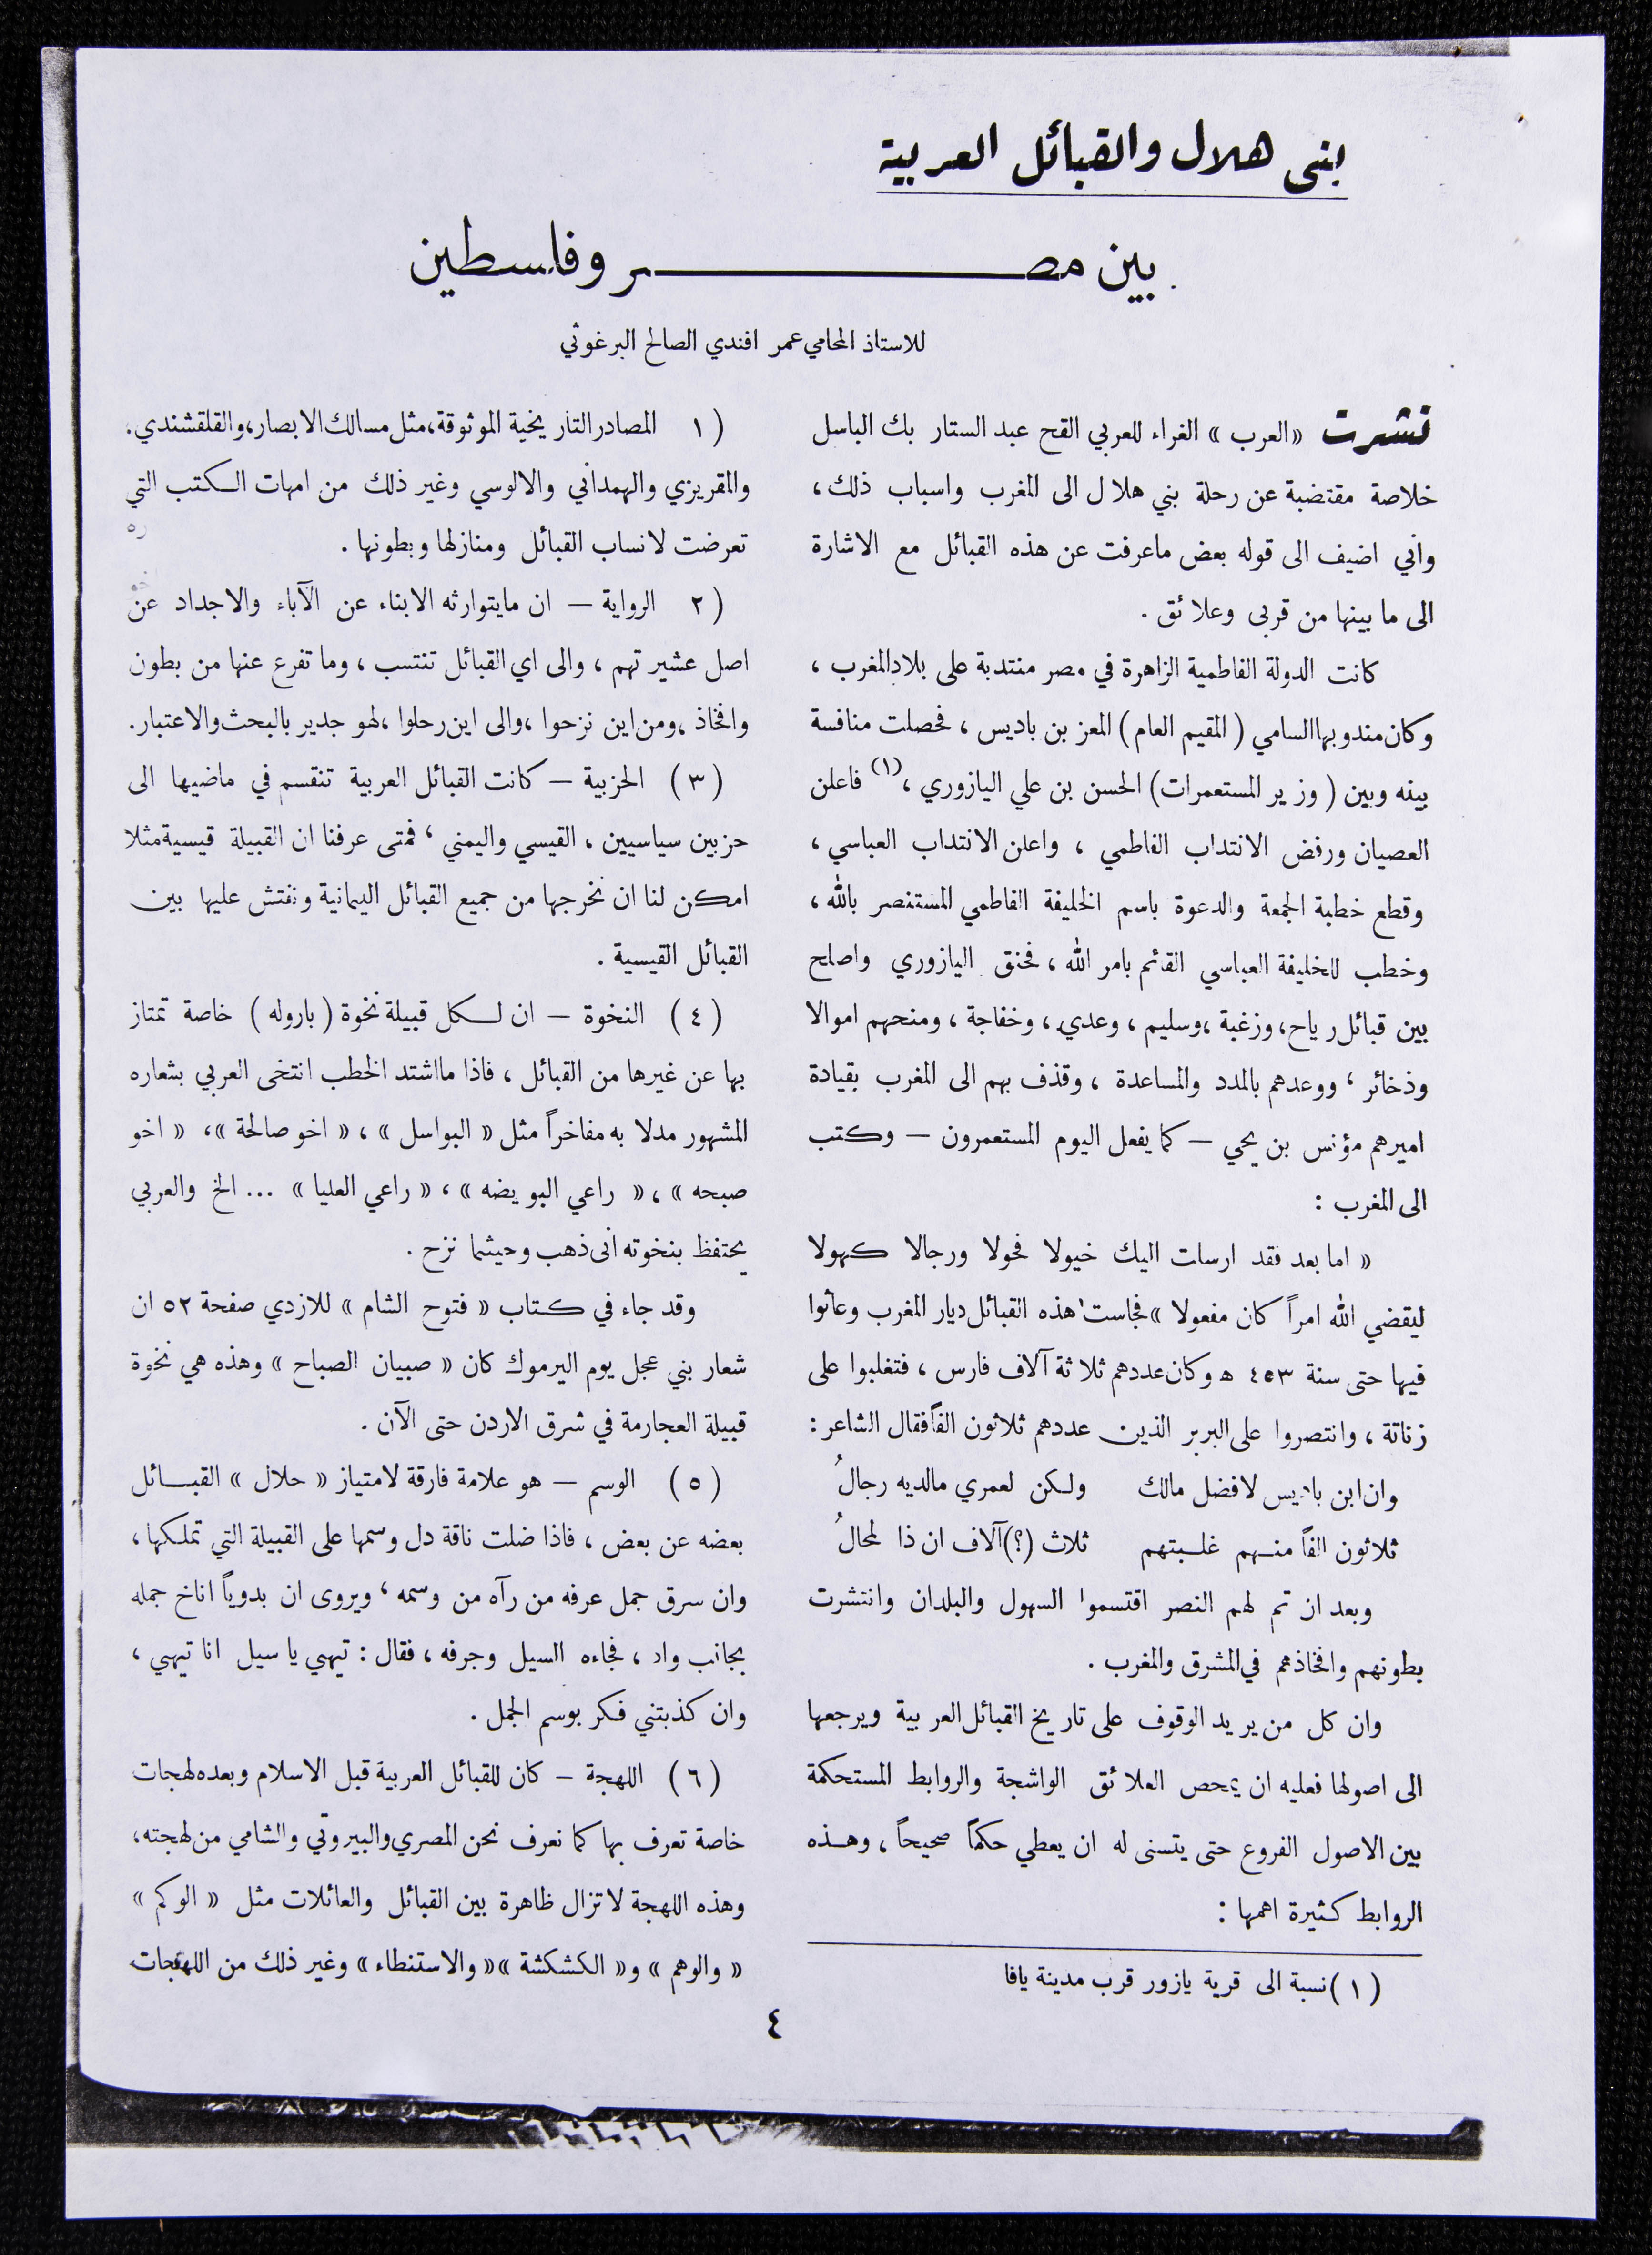 بنى هلال والقبائل العربية
بين مصر وفلسطين
للاستاذ المحامي عمر افندي الصالح البرغوثي
نشرت «العرب» الغراء للعربي القح عبد الستار بك الباسل
خلاصة مقتضبة عن رحلة بني هلال الى المغرب واسباب ذلك،
واني اضيف الى قوله بعض ماعرفت عن هذه القبائل مع الاشارة
الى ما بينها من قربى وعلائق .
كانت الدولة الفاطمية الزاهرة في مصر منتدبة على بلاد المغرب ،
وكان مندوبها السامي ( المقيم العام ) المعز بن باديس ، فحصلت منافسة
بينه وبين ( وزير المستعمرات) الحسن بن علي اليازوري ،(١) فاعلن
العصيان ورفض الانتداب الفاطمي ، واعلن الانتداب العباسي ،
وقطع خطبة الجمعة والدعوة باسم الخليفة الفاطمي المستنصر بالله ،
وخطب للخليفة العباسي القائم بامر الله ، فحنق اليازوري واصلح
بين قبائل رياح، وزغبة ،وسليم ، وعدي ، وخفاجة ، ومنحهم اموالا
وذخائر ، ووعدهم بالمدد والمساعدة ، وقذف بهم الى المغرب بقيادة
اميرهم مؤنس بن يحي — كما يفعل اليوم المستعمرون — وكتب
الى المغرب :
« اما بعد فقد ارسات اليك خيولا فحولا ورجالا كهولا
ليقضي الله امراً كان مفعولا » فجاست هذه القبائل ديار المغرب وعاثوا
فيها حتى سنة ٤٥٣ ه وكان عددهم ثلاثة آلاف فارس ، فتغلبوا على
زناتة ، وانتصروا على البربر الذين عددهم ثلاثون الفاً فقال الشاعر :
وان ابن باديس لافضل مالك ولكن لعمري مالديه رجالُ
ثلاثون الفاً منهم غلبتهم ثلاث (؟) آلاف ان ذا لمحالُ
وبعد ان تم لهم النصر اقتسموا السهول والبلدان وانتشرت
بطونهم وافخاذهم في المشرق والمغرب .
وان كل من يريد الوقوف على تاريخ القبائل العربية ويرجعها
الى اصولها فعليه ان يمحص العلائق الواشجة والروابط المستحكمة
بين الاصول الفروع حتى يتسنى له ان يعطي حكماً صحيحاً ، وهذه
الروابط كثيرة اهمها :
(١) نسبة الى قرية يازور قرب مدينة يافا
(١ المصادر التاريخية الموثوقة،مثل مسالك الابصار،والقلقشندي،
والمقريزي والهمداني والالوسي وغير ذلك من امهات الكتب التي
تعرضت لانساب القبائل ومنازلها وبطونها .
(٢ الرواية — ان مايتوارثه الابناء عن الآباء والاجداد عن
اصل عشيرتهم ، والى اي القبائل تنتسب ، وما تفرع عنها من بطون
وافخاذ ،ومن اين نزحوا ،والى اين رحلوا ،لهو جدير بالبحث والاعتبار.
(٣) الحزبية — كانت القبائل العربية تنقسم في ماضيها الى
حزبين سياسيين ، القيسي واليمني ، فمتى عرفنا ان القبيلة قيسية مثلا
امكن لنا ان نخرجها من جميع القبائل اليمانية ونفتش عليها بين
القبائل القيسية .
(٤) النخوة — ان لكل قبيلة نخوة ( باروله ) خاصة تمتاز
بها عن غيرها من القبائل ، فاذا مااشتد الخطب انتخى العربي بشعاره
المشهور مدلا به مفاخراً مثل « البواسل » ، « اخو صالحة »، « اخو
صبحه » ، « راعي البويضه » ، « راعي العليا » ... الخ والعربي
يحتفظ بنخوته أنى ذهب وحيثما نزح .
وقد جاء في كتاب « فتوح الشام » للازدي صفحة ٥٢ ان
شعار بني عجل يوم اليرموك كان « صبيان الصباح » وهذه هي نخوة
قبيلة العجارمة في شرق الاردن حتى الآن .
(٥) الوسم — هو علامة فارقة لامتياز « حلال » القبائل
بعضه عن بعض ، فاذا ضلت ناقة دل وسمها على القبيلة التي تملكها ،
وان سرق جمل عرفه من رآه من وسمه ، ويروى ان بدوياً اناخ جمله
بجانب واد ، فجاءه السيل وجرفه ، فقال : تيهي يا سيل انا تيهي ،
وان كذبتني فكر بوسم الجمل .
(٦) اللهجة — كان للقبائل العربية قبل الاسلام وبعده لهجات
خاصة تعرف بها كما نعرف نحن المصري والبيروتي والشامي من لهجته،
وهذه اللهجة لاتزال ظاهرة بين القبائل والعائلات مثل « الوكم »
« والوهم » و« الكشكشة » « والاستنطاء » وغير ذلك من اللهجات
٤